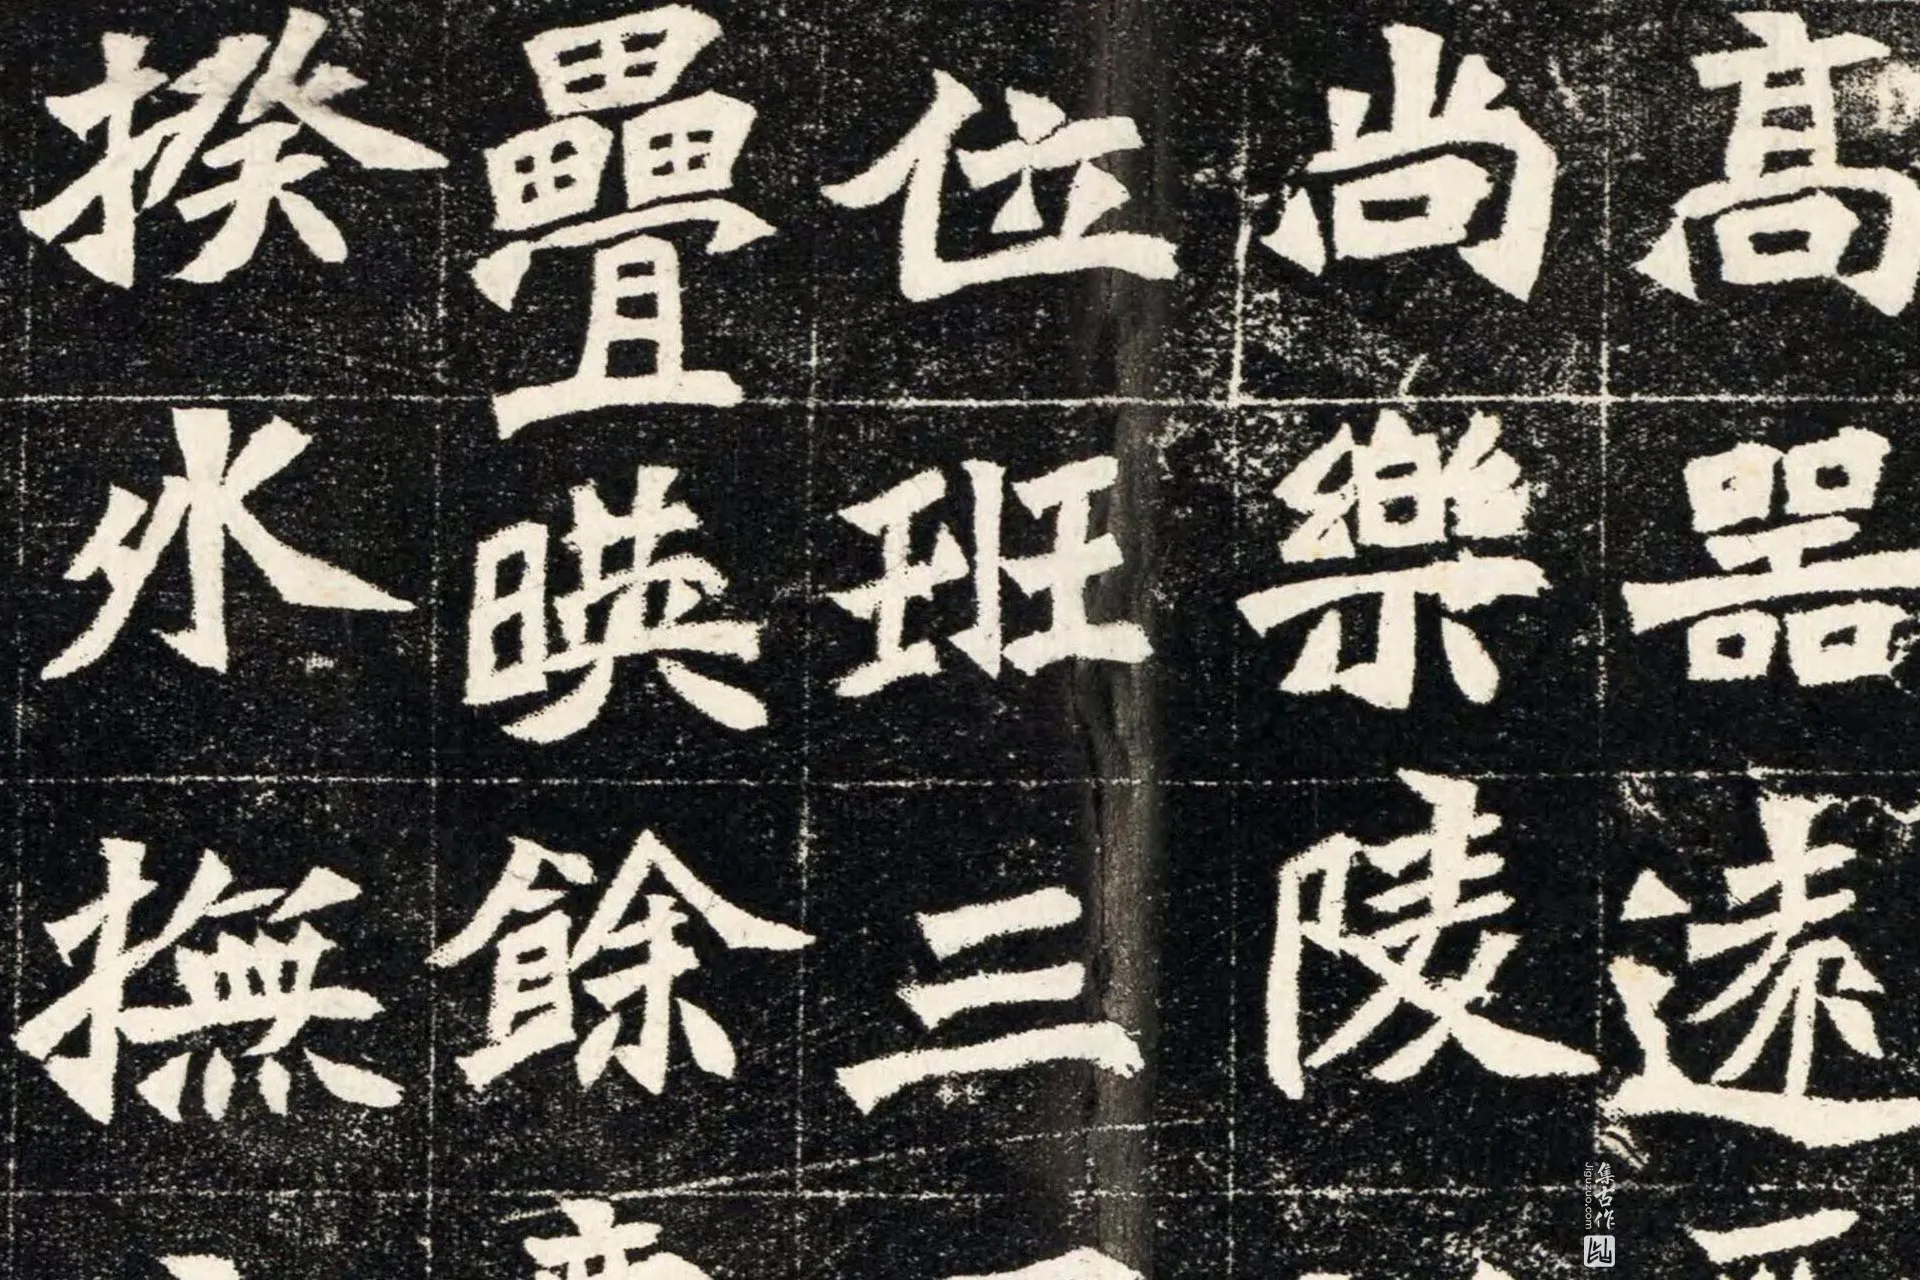 高噐遠
尚樂陵
位班三
疊暎餘
揆氷撫
集古作
Jiguzuo.com